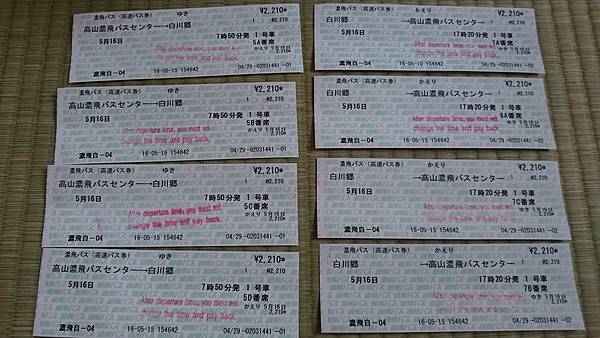 濃飛バス（高速バス券） ゆき ¥2,210*
高山濃飛バスセンター→白川郷 1 #2,210
5月16日 7時50分発 1 号車
5A番席
かえり 5月16日
2,210*
After departure time, you must not
change the time and pay back.
濃飛自-04 16-05-15 154642 04/29 -02031441 -01
濃飛バス（高速バス券） ゆき ¥2,210*
高山濃飛バスセンター→白川郷 1 #2,210
5月16日 7時50分発 1 号車
5B番席
かえり 5月16日
2,210*
After departure time, you must not
change the time and pay back.
濃飛自-04 16-05-15 154642 04/29 -02031441 -01
濃飛バス（高速バス券） ゆき ¥2,210*
高山濃飛バスセンター→白川郷 1 #2,210
5月16日 7時50分発 1 号車
5C番席
かえり 5月16日
2,210*
After departure time, you must not
change the time and pay back.
濃飛自-04 16-05-15 154642 04/29 -02031441 -01
濃飛バス（高速バス券） ゆき ¥2,210*
高山濃飛バスセンター→白川郷 1 #2,210
5月16日 7時50分発 1 号車
5D番席
かえり 5月16日
2,210*
After departure time, you must not
change the time and pay back.
濃飛自-04 16-05-15 154642 04/29 -02031441 -01
濃飛バス（高速バス券） かえり ¥2,210*
白川郷 →高山濃飛バスセンター 1 #2,210
5月16日 17時20分発 1 号車
7A番席
ゆき 5月16日
2,210*
After departure time, you must not
change the time and pay back.
濃飛自-04 16-05-15 154642 04/29 -02031441 -02
濃飛バス（高速バス券） かえり ¥2,210*
白川郷 →高山濃飛バスセンター 1 #2,210
5月16日 17時20分発 1 号車
8A番席
ゆき 5月16日
2,210*
After departure time, you must not
change the time and pay back.
濃飛自-04 16-05-15 154642 04/29 -02031441 -02
濃飛バス（高速バス券） かえり ¥2,210*
白川郷 →高山濃飛バスセンター 1 #2,210
5月16日 17時20分発 1 号車
7C番席
ゆき 5月16日
2,210*
After departure time, you must not
change the time and pay back.
濃飛自-04 16-05-15 154642 04/29 -02031441 -02
濃飛バス（高速バス券） かえり ¥2,210*
白川郷 →高山濃飛バスセンター 1 #2,210
5月16日 17時20分発 1 号車
7B番席
ゆき 5月16日
2,210*
After departure time, you must not
change the time and pay back.
濃飛自-04 16-05-15 154642 04/29 -02031441 -02